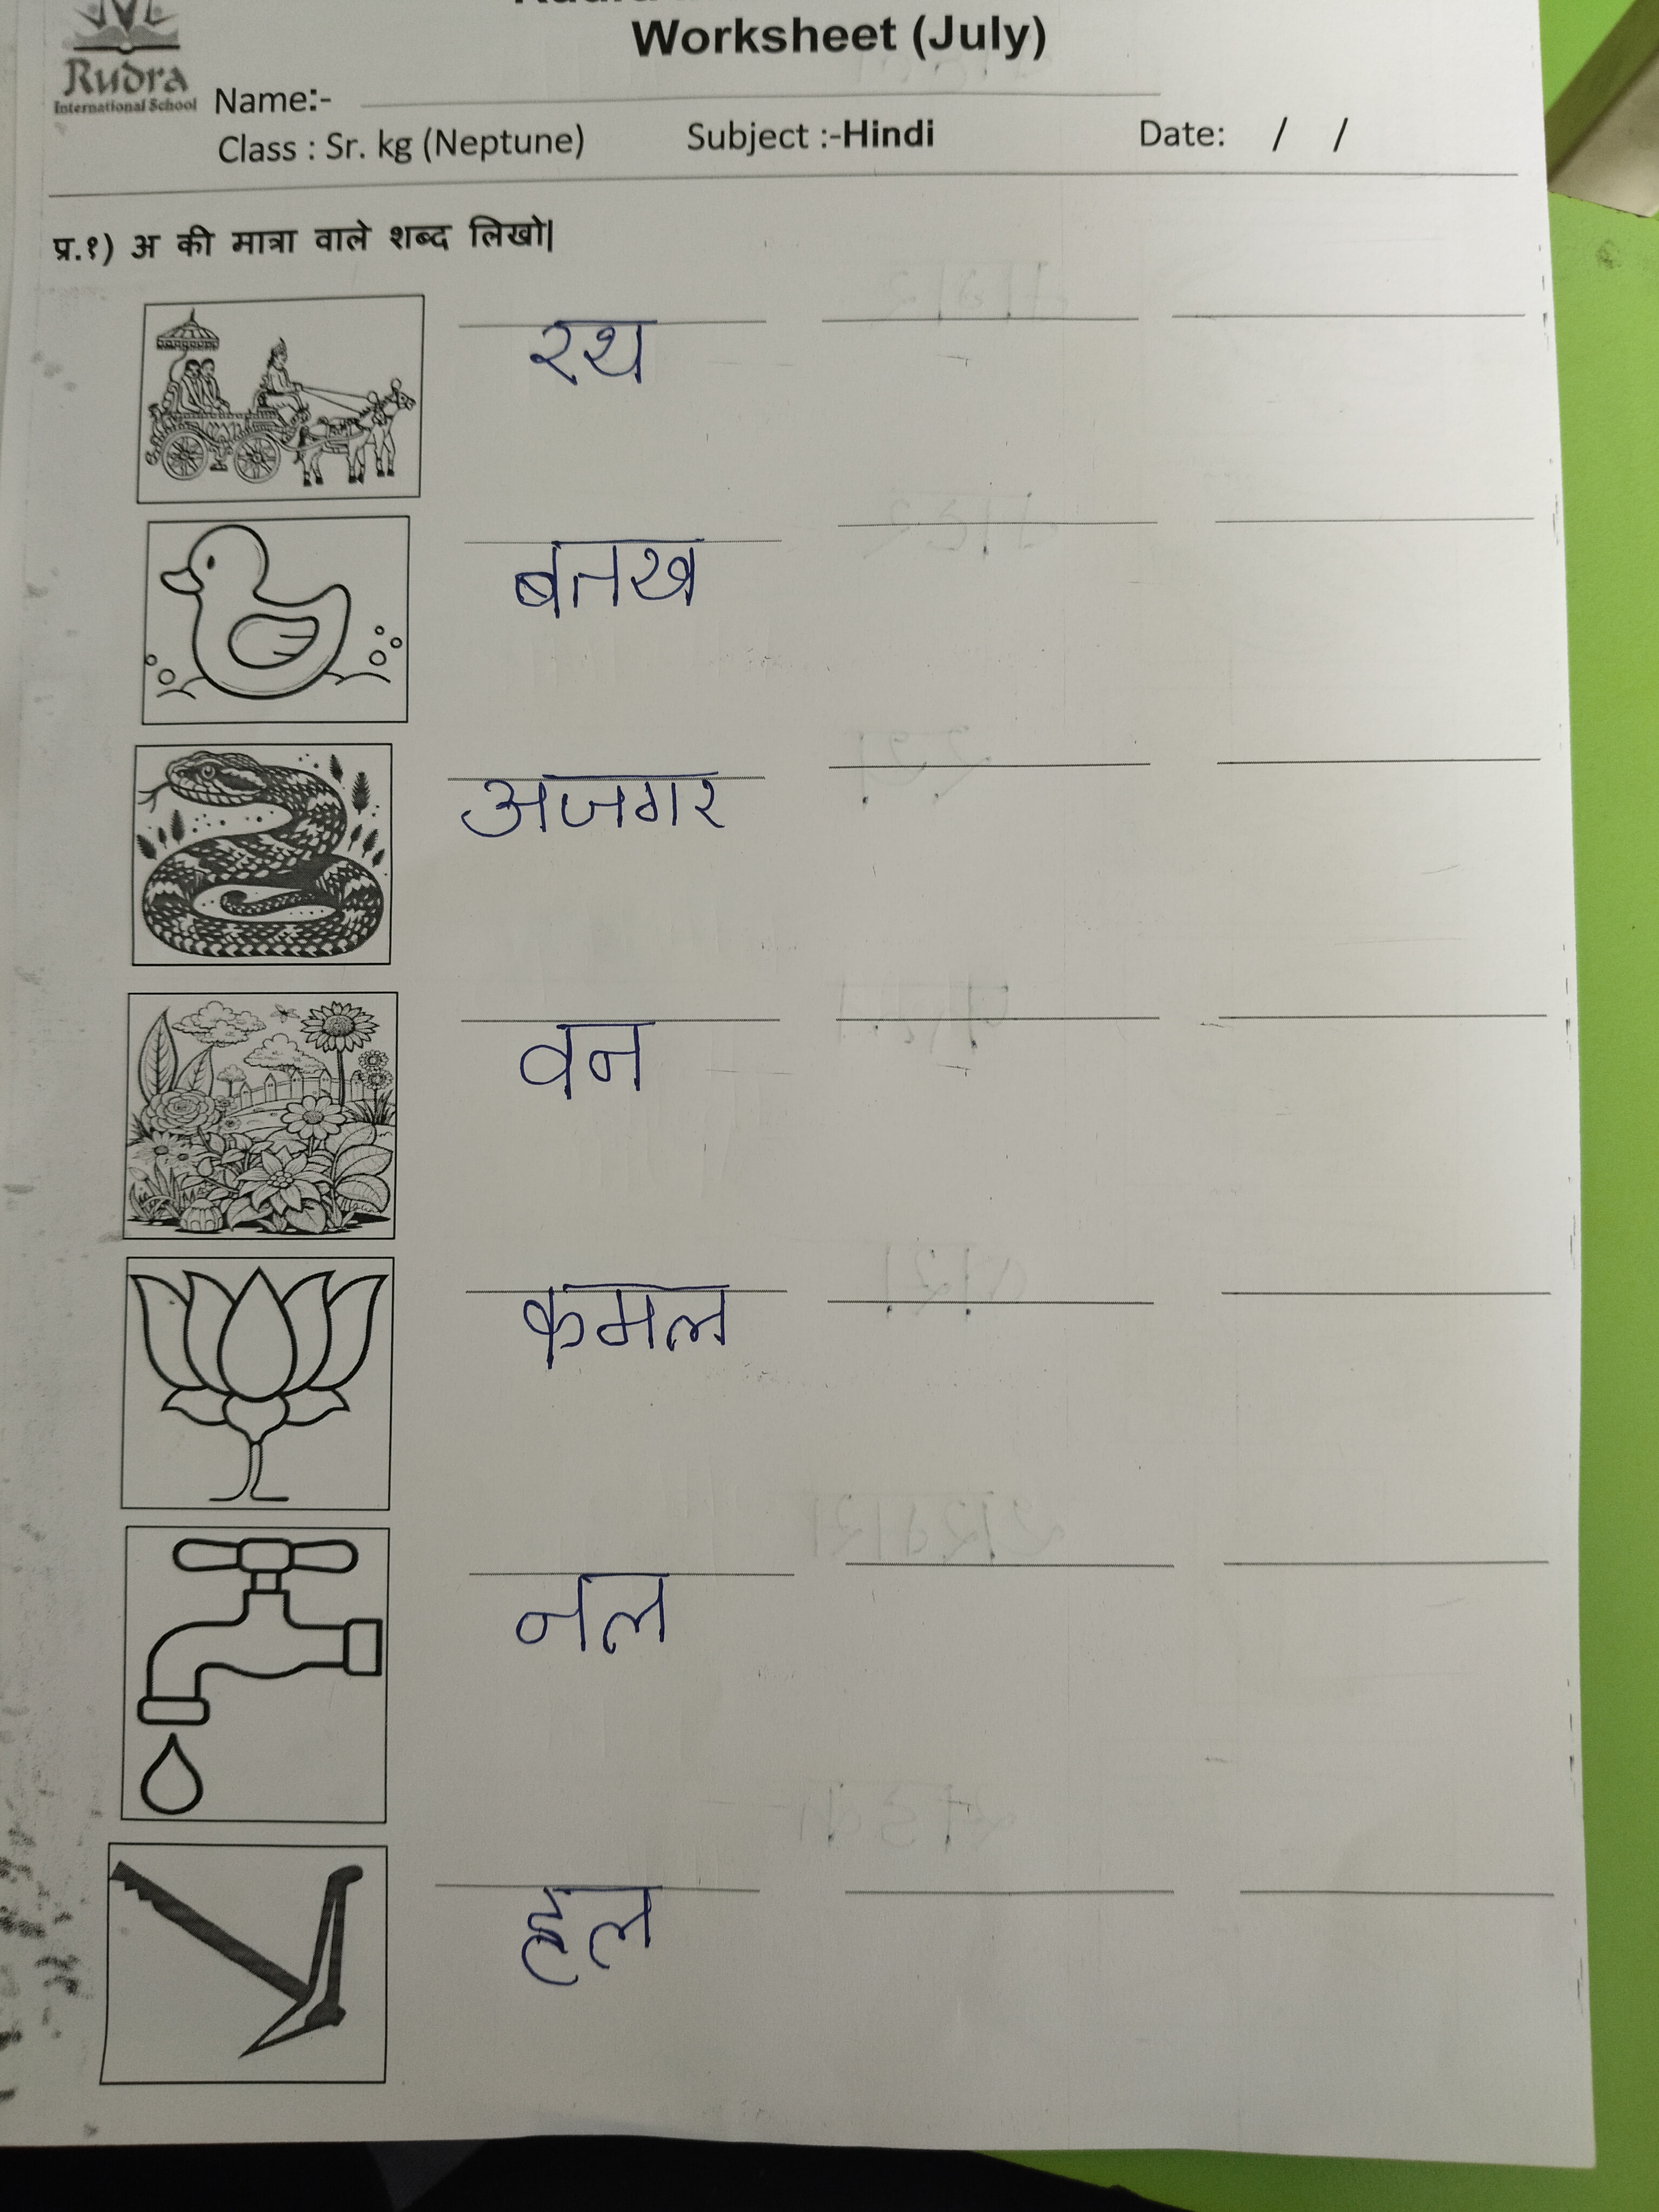 Worksheet (July)
Rudra
International School
Name:-
Class : Sr. kg (Neptune) Subject :-Hindi Date: / /
प्र.१) अ की मात्रा वाले शब्द लिखो|
रथ
बतख
अजगर
वन
कमल
नल
हल